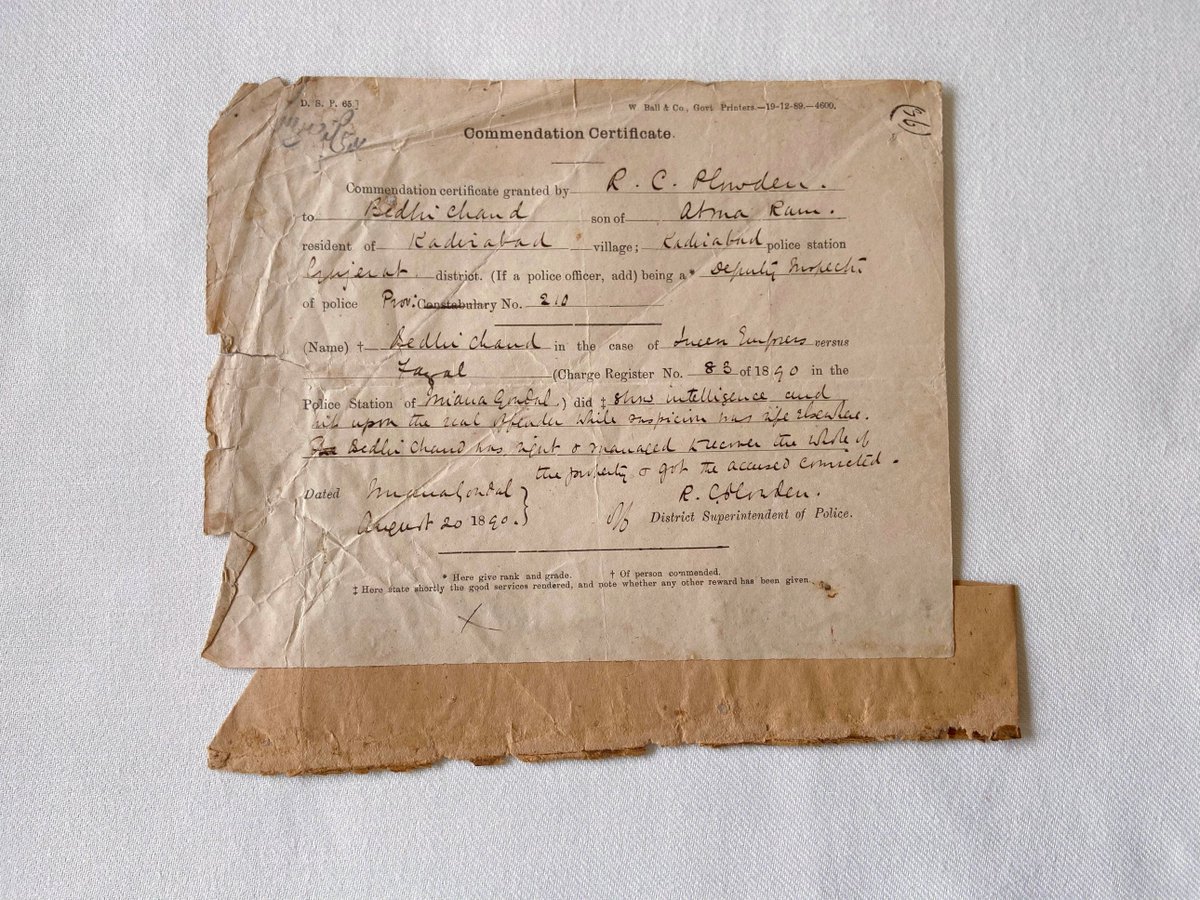 D. S. P. 65.]
W Ball & Co., Govt Printers.—19-12-89.—4600.
Commendation Certificate.
Commendation certificate granted by R. C. Plowden.
to Bedhi Chand son of Atma Ram.
resident of Kadirabad village; Kadirabad police station
Gujerat. district. (If a police officer, add) being a* Deputy Inspectr
of police Prov: Constabulary No. 210
(Name) † Bedhi Chand in the case of Queen Empress versus
Fazal (Charge Register No. 83 of 1890 in the
Police Station of Miana Gondal) did ‡ show intelligence and
hit upon the real offender while suspicion was rife elsewhere.
Bedhi Chand was right & managed to recover the whole of
the property & got the accused convicted.
Dated Miana Gondal
R. C. Plowden.
August 20 1890.
District Superintendent of Police.
* Here give rank and grade. † Of person commended.
‡ Here state shortly the good services rendered, and note whether any other reward has been given.